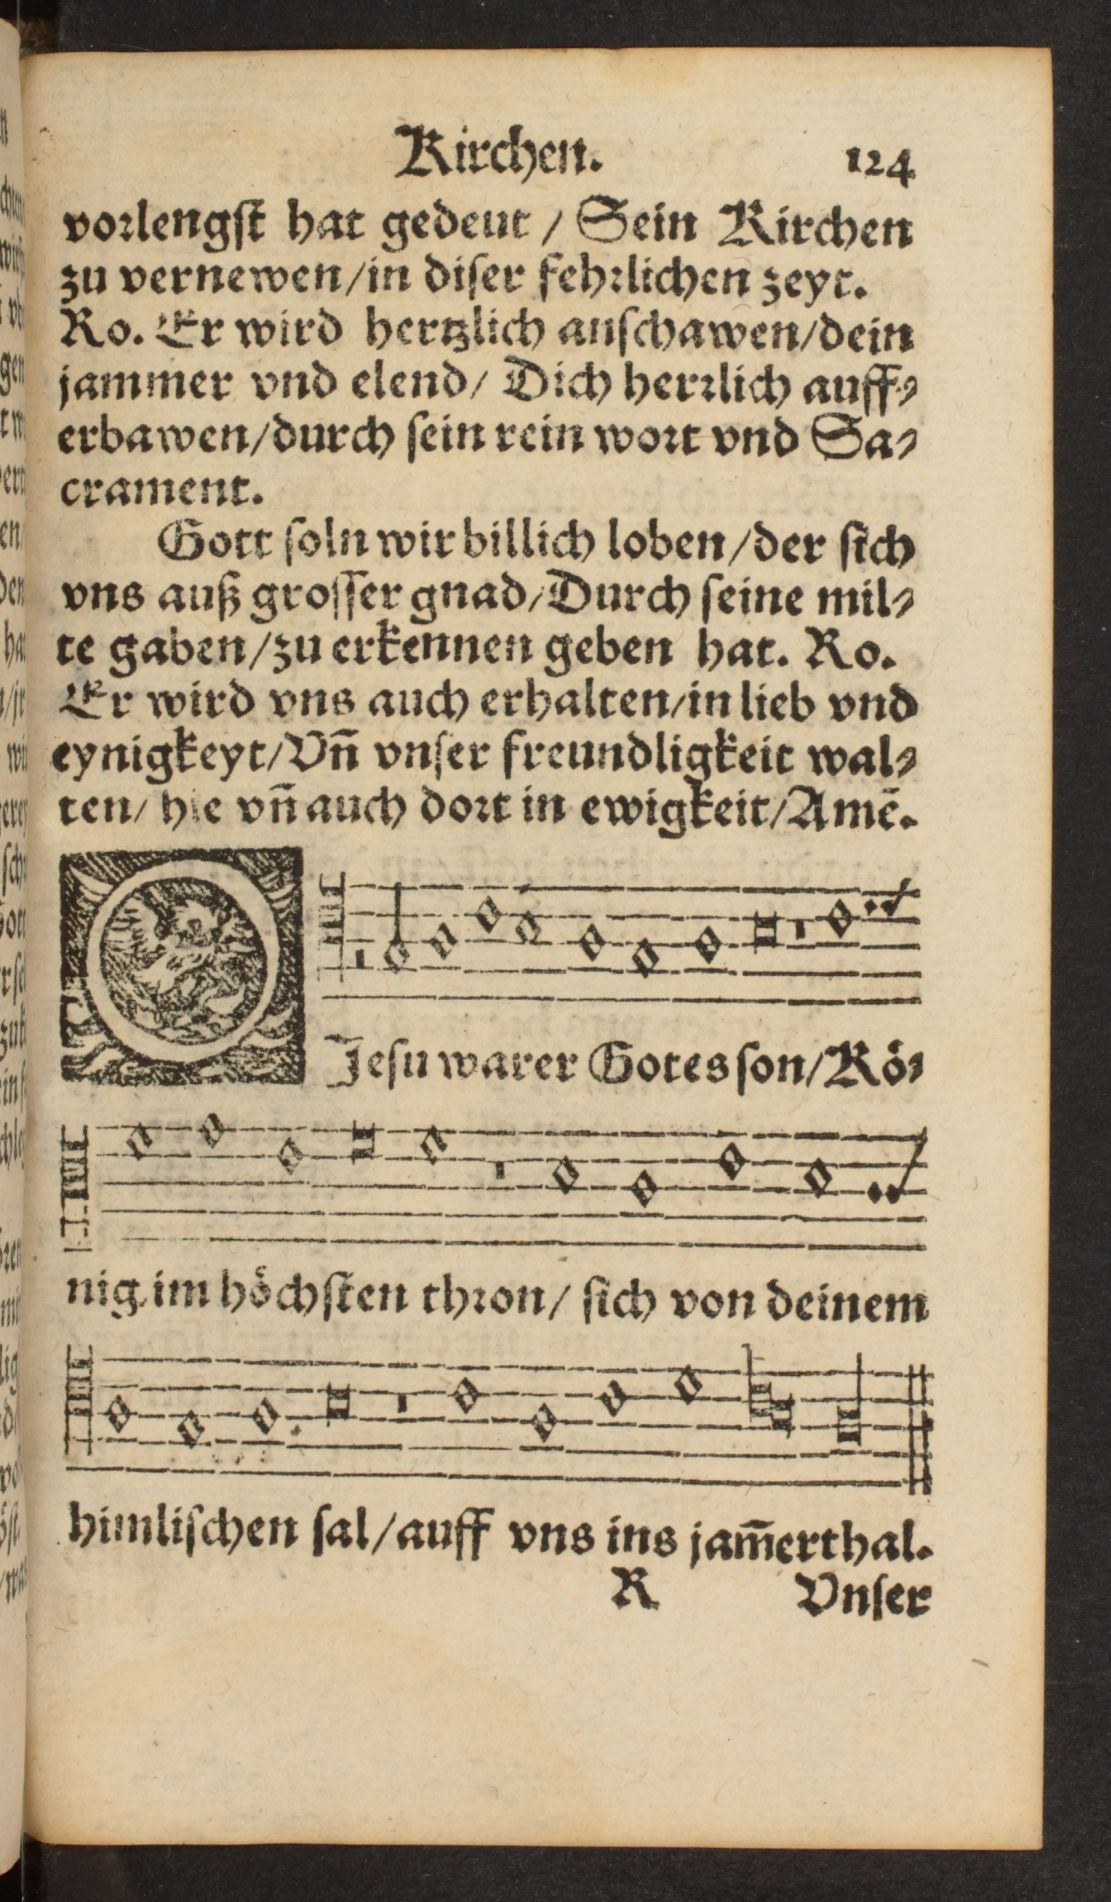 Kirchen. 124
vorlengst hat gedeut / Sein Kirchen
zu vernewen/in diser fehrlichen zeyt.
Ro. Er wird hertzlich anschawen/dein
jammer vnd elend/ Dich herrlich auff⸗
erbawen/durch sein rein wort vnd Sa⸗
crament.
Gott soln wir billich loben/der sich
vns auß grosser gnad/Durch seine mil⸗
te gaben/zu erkennen geben hat. Ro.
Er wird vns auch erhalten/in lieb vnd
eynigkeyt/Vn̄ vnser freundligkeit wal⸗
ten/ hie vn̄ auch dort in ewigkeit/Amē.
O Jesu warer Gotes son/Kö⸗
nig im höchsten thron/ sich von deinem
himlischen sal/auff vns ins jam̄erthal.
R Vnser